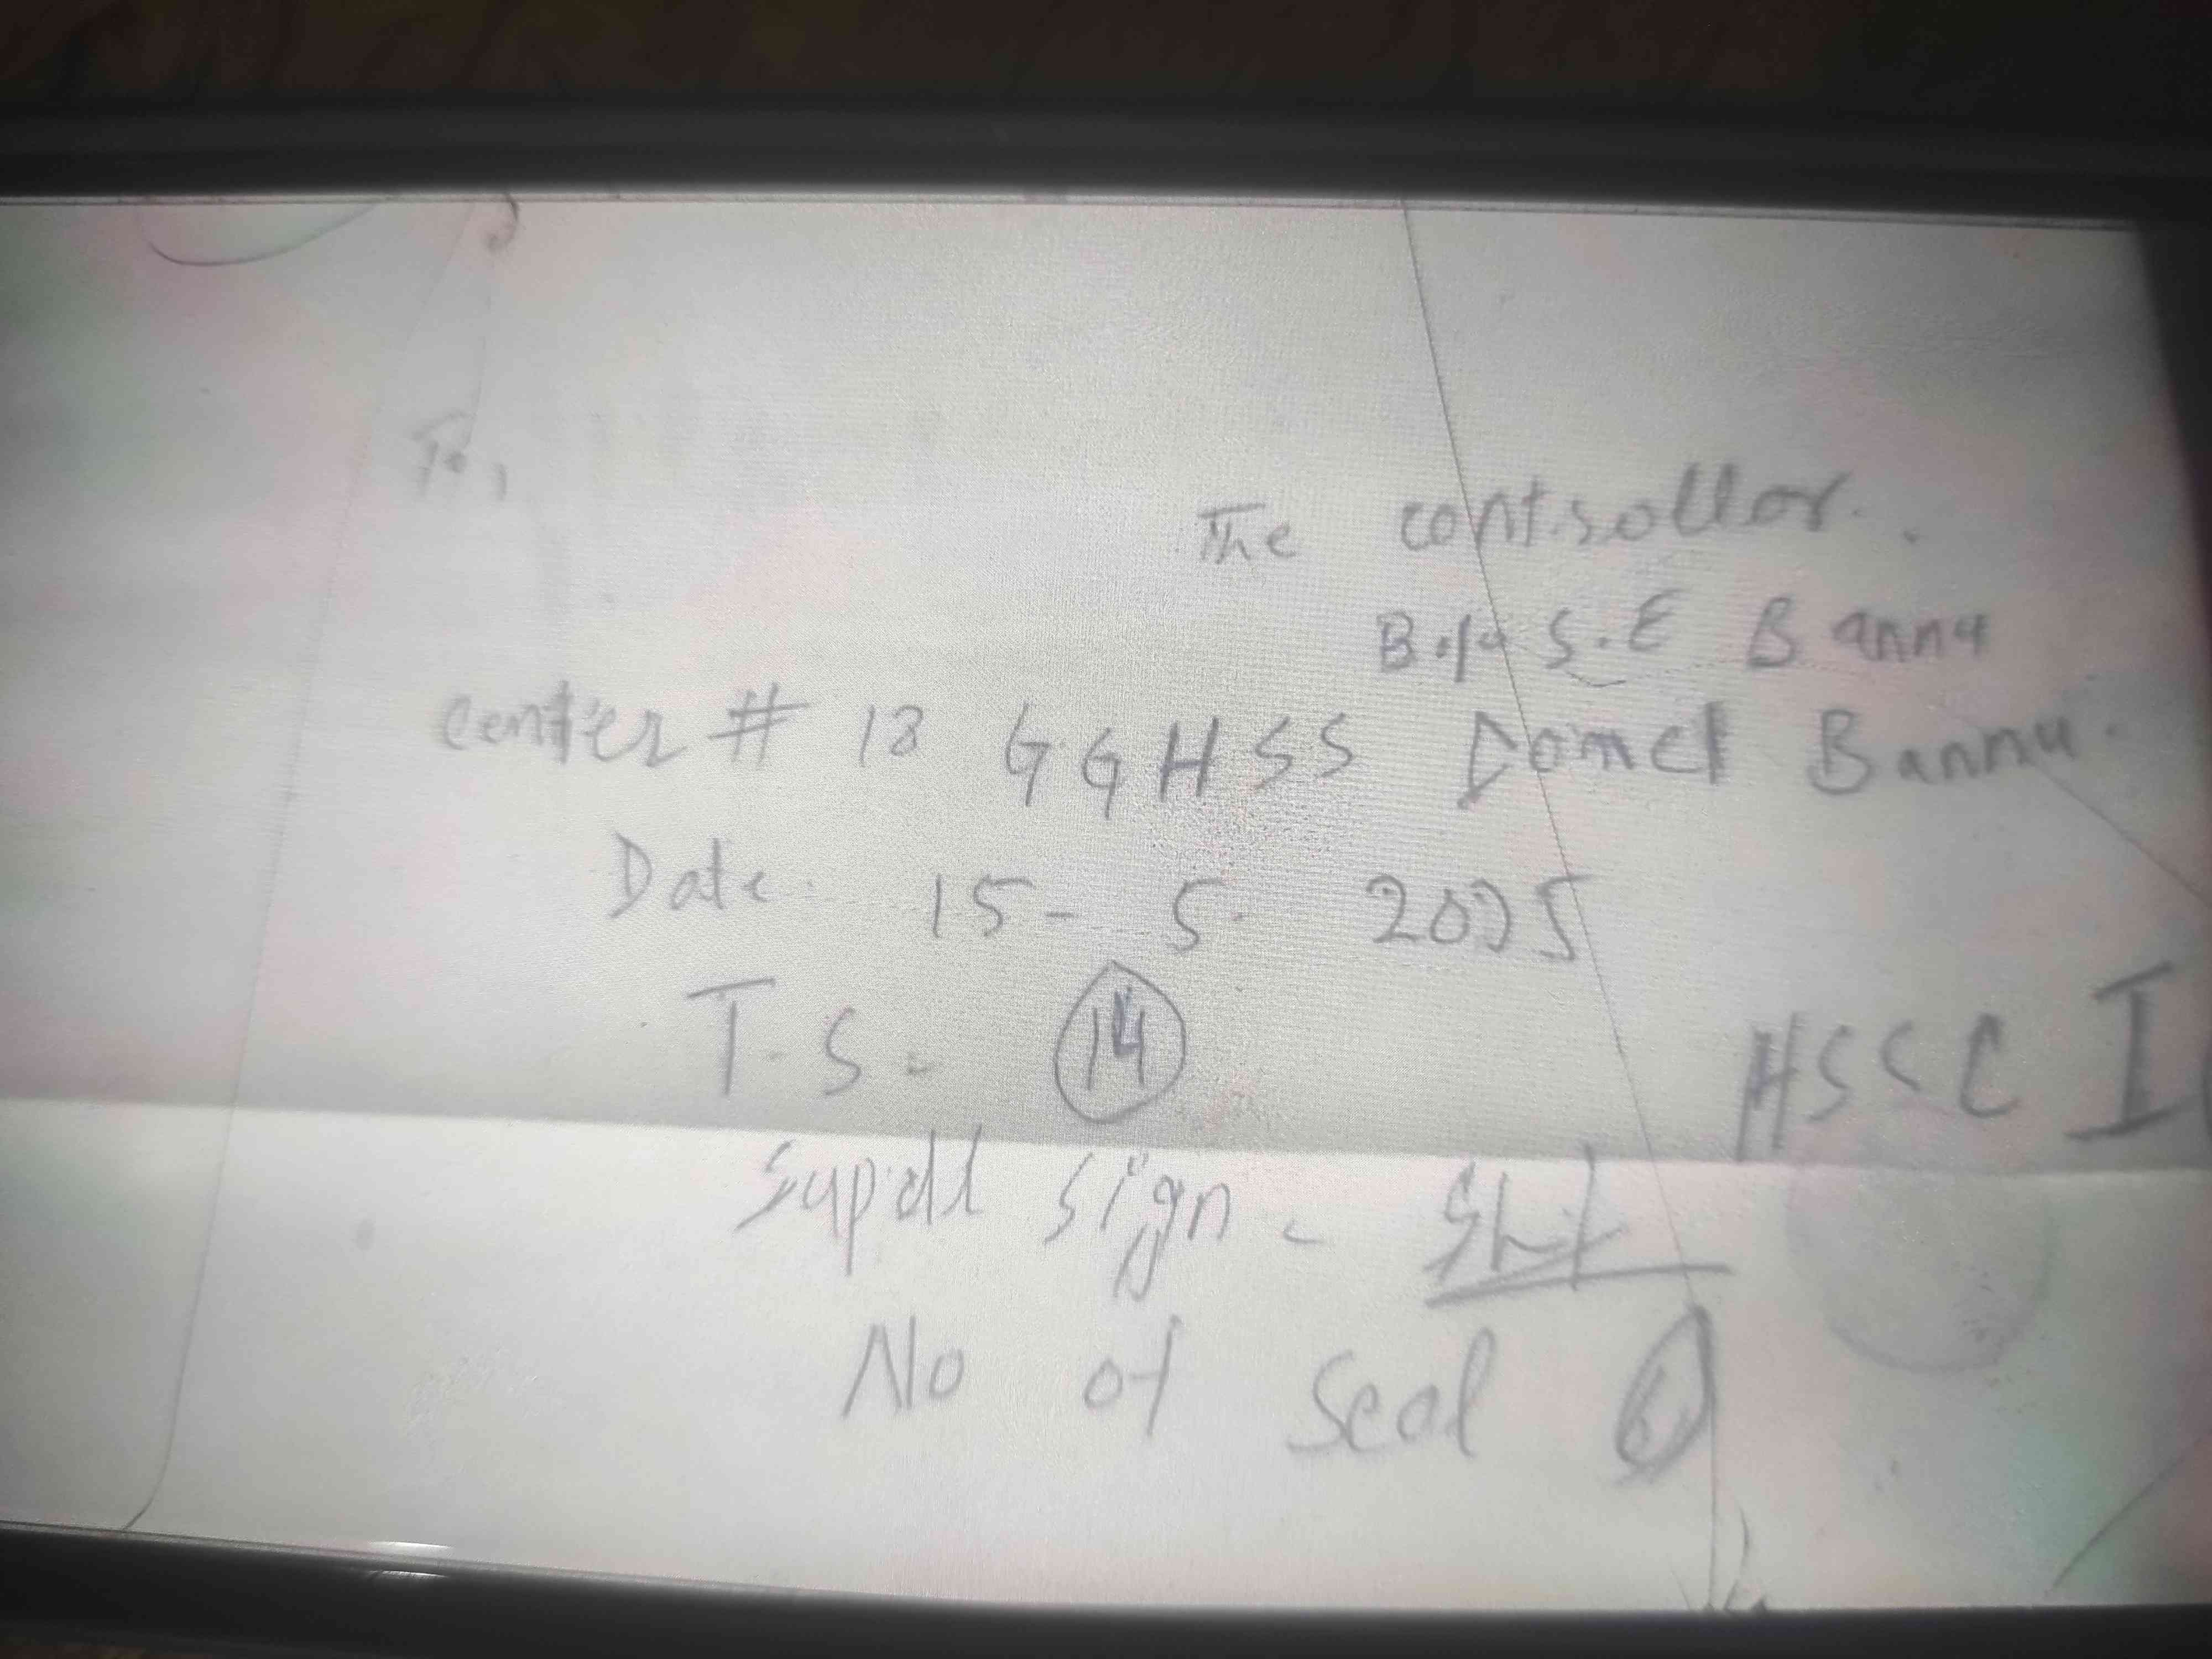 To,
The controllor.
B.I.S.E Bannu
center # 18 GGHSS Domel Bannu.
Date. 15-5-2025
T.S. 14
HSSC I
Supdtt sign.
No of Seal 6